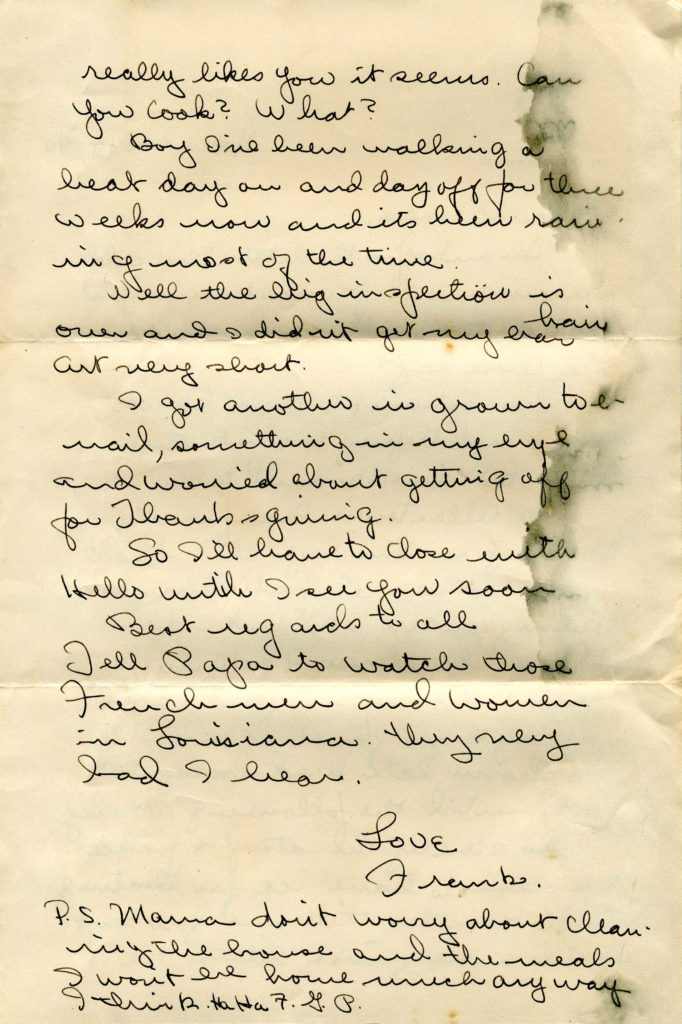 really likes you it seems. Can
you cook? What?
Boy I've been walking a
beat day on and day off for three
weeks now and its been rain-
ing most of the time.
Well the big inspection is
over and I didn't get my hair
cut very short.
I got another in grown toe-
nail, something in my eye
and worried about getting off
for Thanksgiving.
So I'll have to close with
Hello until I see you soon
Best regards to all
Tell Papa to watch those
French men and women
in Louisiana. they very
bad I hear.
Love
Frank.
P.S. Mama don't worry about clean-
ing the house and the meals
I wont be home much any way
I think. Ha Ha F. G. P.